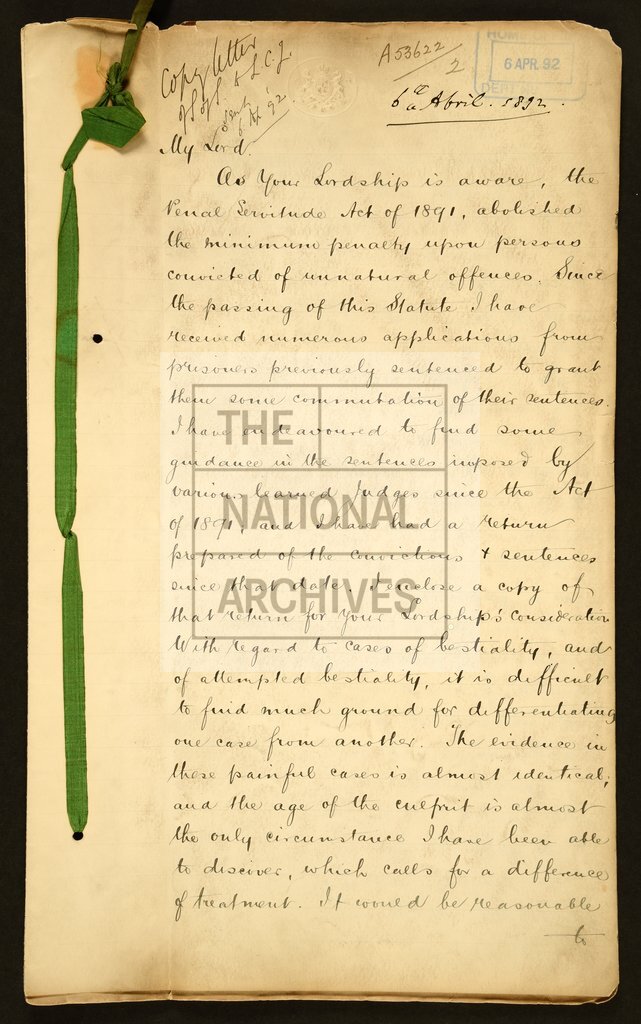 Copy letter
of S of S. to L.C.J.
Sent
6 Ap '92.
A53622
2
HOME
6 APR. 92
DEPT
6th April. 1892.
My Lord.
As Your Lordship is aware, the
Penal Servitude Act of 1891, abolished
the minimum penalty upon persons
convicted of unnatural offences. Since
the passing of this Statute I have
received numerous applications from
prisoners previously sentenced to grant
them some commutation of their sentences.
I have endeavoured to find some
guidance in the sentences imposed by
various learned Judges since the Act
of 1891, and I have had a return
prepared of the convictions & sentences
since that date. I enclose a copy of
that return for Your Lordship's consideration
With regard to cases of bestiality, and
of attempted bestiality, it is difficult
to find much ground for differentiating
one case from another. The evidence in
these painful cases is almost identical;
and the age of the culprit is almost
the only circumstance I have been able
to discover, which calls for a difference
of treatment. It would be reasonable
to
THE
NATIONAL
ARCHIVES